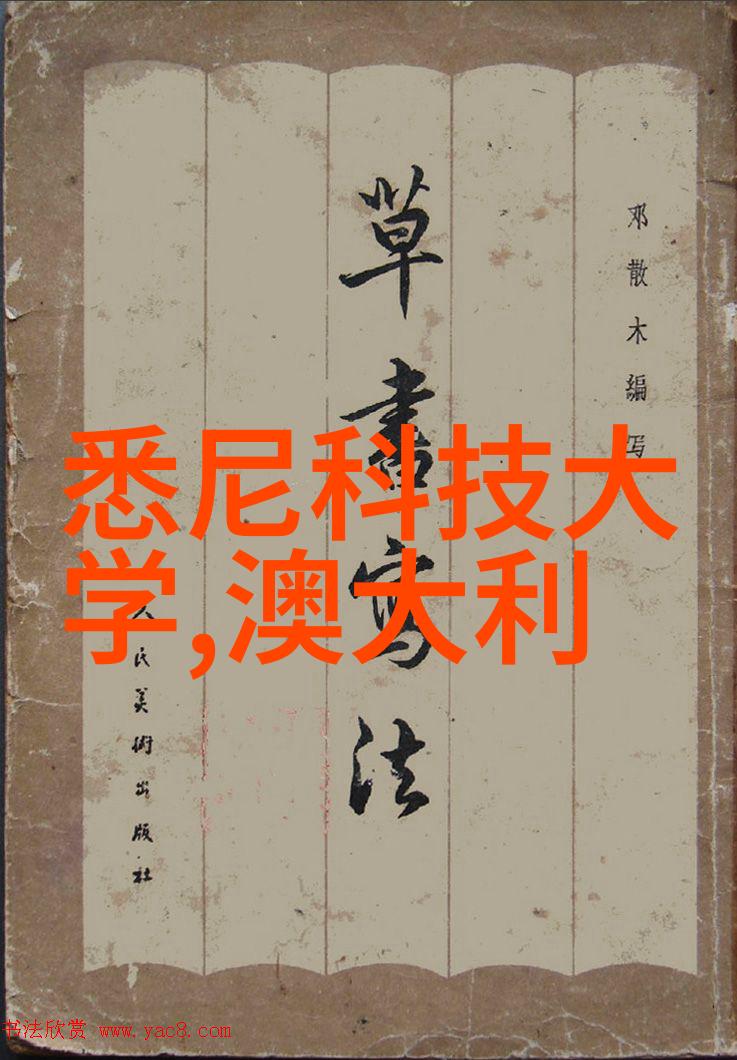 草書寫法
邓散木编写
人民美術出版社
悉尼科技大
学,澳大利
书法欣赏 www.yac8.com